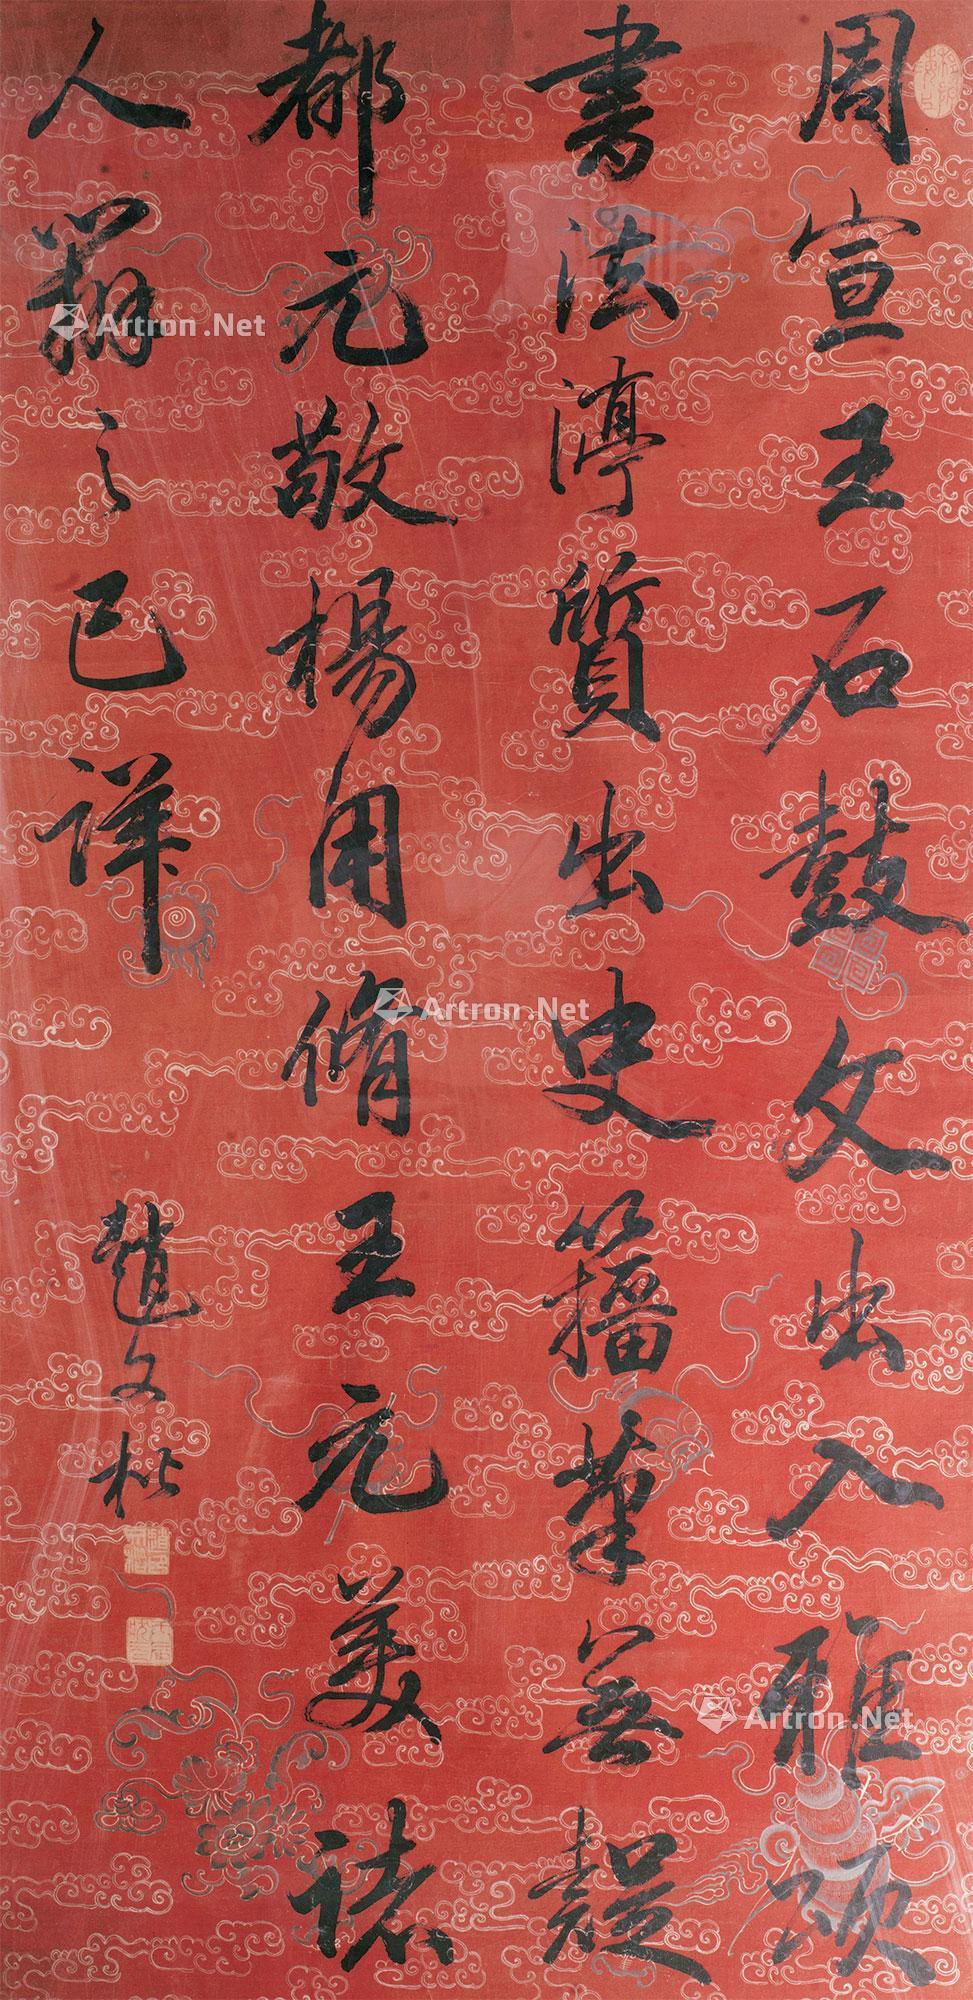 周宣王石鼓文出入雅頌
書法渟質出史籀筆無疑
都元敬楊用脩王元美諸
人辯之已詳
趙文楷
Artron.Net
Artron.Net
Artron.Net